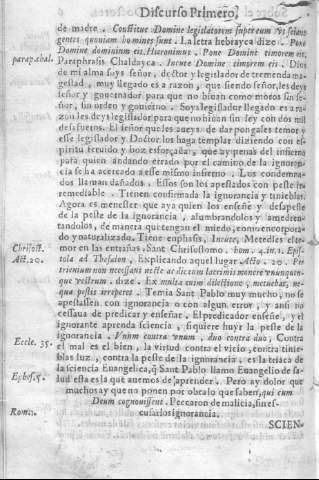 Discurso Primero,
de madre. Constitue Domine legislatorem super eum ut sciant
gentes quoniam homines sunt. La letra hebrayca dize. Pone
Domine dominium eis. Hieronimus. Pone Domine timorem eis.
parap.chal. Paraphrasis Chaldayca. Incute Domine timorem eis. Dios
de mi alma soys señor, doctor y legislador de tremenda ma
gestad, muy llegado es a razon, que siendo señor, les deys
señor y gouernador para que no biuan como moros sin se-
ñor, sin orden y gouierno. Soys legislador llegado es a ra-
zon les deys legislador para que no biuan sin ley con dos mil
desafueros. El señor que les aueys de dar pongales temor y
esse legislador y Doctor los haga temblar diziendo con es-
piritu brauido y boz esforçada, que ay penas del infierno
para quien andando errado por el camino de la ignoran-
cia se ha acercado a esse mismo infierno. Los condemna-
dos llaman dañados. Essos son los apestados con peste ir-
remediable. Tienen confirmada la ignorancia y tinieblas.
Agora es menester que aya quien los enseñe y desapeste
de la peste de la ignorancia, alumbrandolos y amedren-
tandolos, de manera que tengan el miedo, como encorpora
do y naturalizado. Tiene emphasis, Incute, Metedles el te-
Chrisost. mor en las entrañas. Sant Chrisostomo. hom. 4. in 1. Epis-
tola ad Thesalon,
Act. 20. Explicando aquel lugar Acto. 20. Per
trienium non cessaui nocte ac die cum lacrimis monere vnunquen-
que vestrum. dize. Ex multa enim dilectione, metuebat, ne-
qua pestis irreperet. Temia Sant Pablo muy mucho, no se
apestassen con ignorancia o con algun error, y ansi no
cessaua de predicar y enseñar. El predicador enseñe, y el
ignorante aprenda sciencia, si quiere huyr la peste de la
ignorancia. Vnum contra vnum, duo contra duo, Contra
Eccle. 35. el mal es el bien, la virtud contra el vicio, contra tinie-
blas luz, contra la peste de la ignorancia, es la triaca de
la sciencia Euangelica, q̃ Sant Pablo llamo Euangelio de sa-
Ephes. lud: esta es la que auemos de aprender. Pero ay dolor que
muchos ay que no ponen por obra lo que saben, qui cum
Deum cognouissent. Peccaron de malicia, sin es-
Rom. cusarlos ignorancia.
SCIEN-